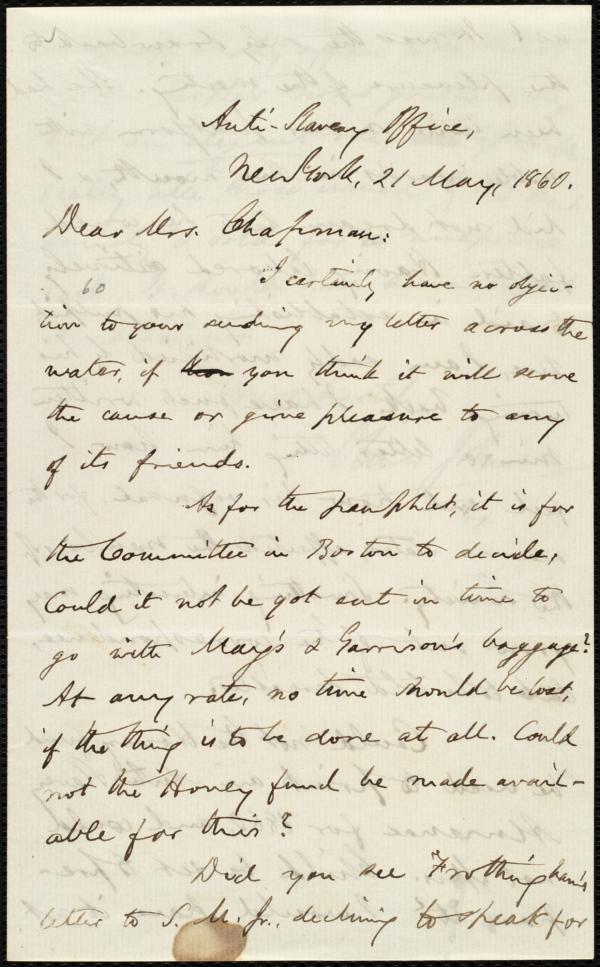 Anti-Slavery Office,
New York, 21 May, 1860.
Dear Mrs. Chapman:
I certainly have no objec-
60
tion to your sending my letter across the
water, if you think it will serve
the cause or give pleasure to any
of its friends.
As for the pamphlet, it is for
the Committee in Boston to decide,
Could it not be got out in time to
go with May's & Garrison's baggage?
At any rate, no time should be lost,
if the thing is to be done at all. Could
not the Hovey fund be made avail-
able for this?
Did you see Frothingham's
letter to S. M. Jr., declining to speak for